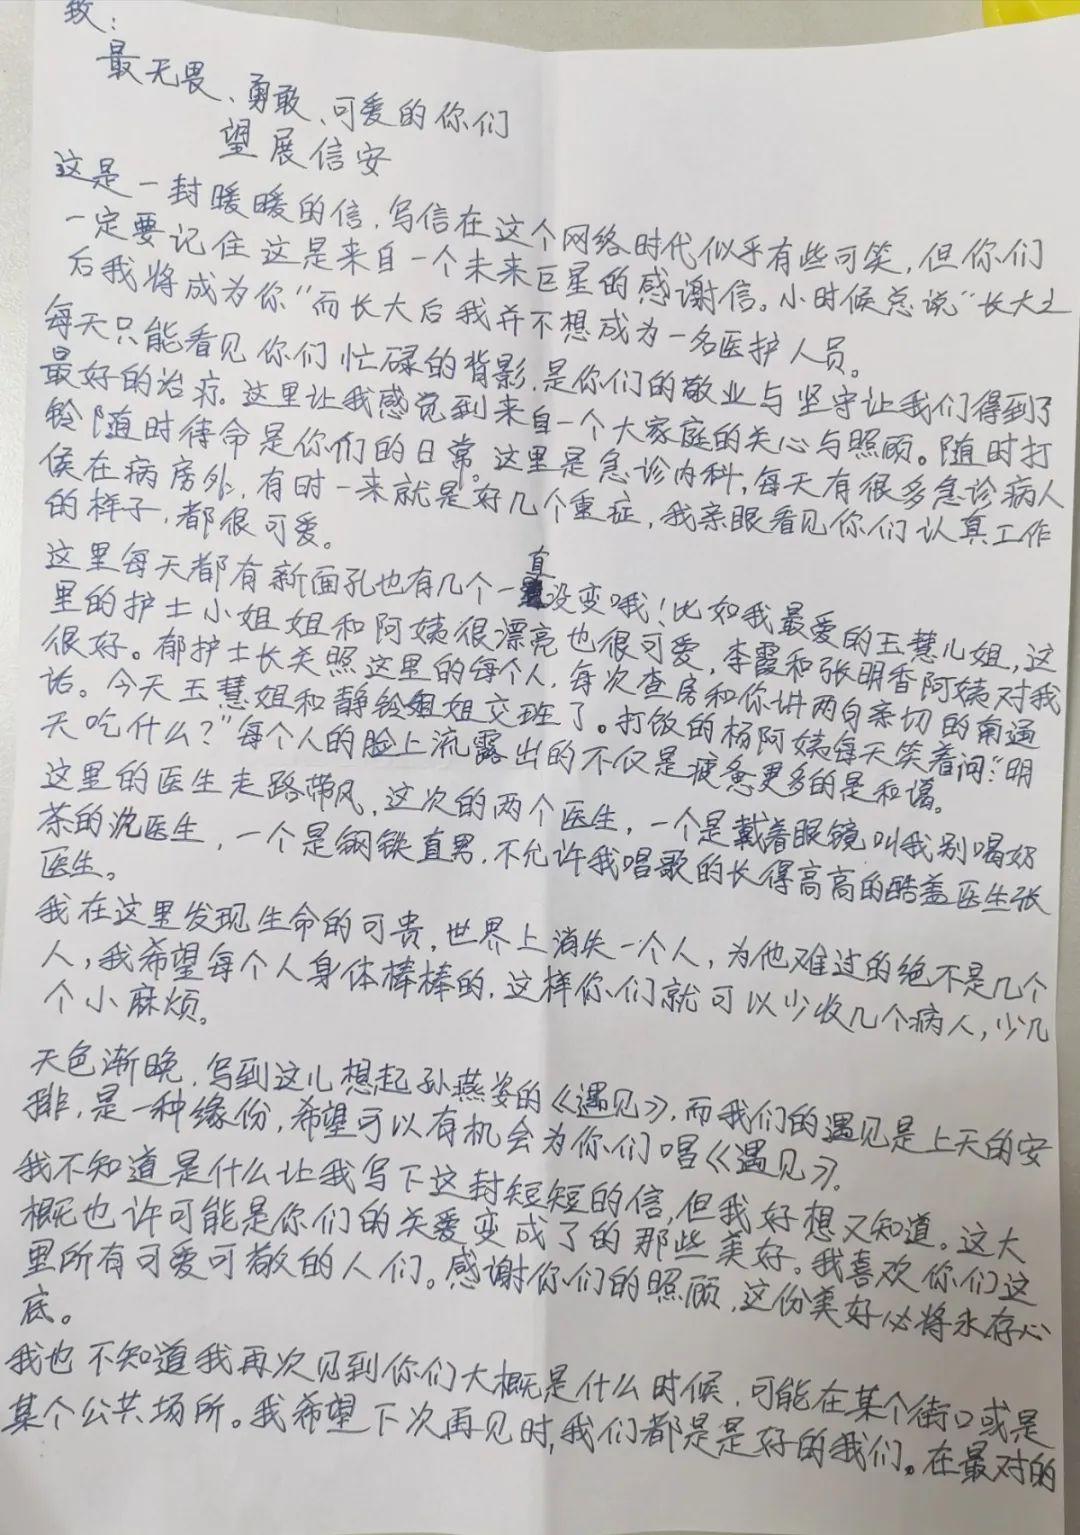 致:
最无畏、勇敢、可爱的你们
望展信安
这是一封暖暖的信,写信在这个网络时代似乎有些可笑,但你们
一定要记住这是来自一个未来巨星的感谢信。小时候总说"长大之
后我将成为你"而长大后我并不想成为一名医护人员。
每天只能看见你们忙碌的背影,是你们的敬业与坚守让我们得到了
最好的治疗。这里让我感觉到来自一个大家庭的关心与照顾。随时打
铃随时待命是你们的日常。这里是急诊内科,每天有很多急诊病人
侯在病房外,有时一来就是好几个重症,我亲眼看见你们认真工作
的样子,都很可爱。
这里每天都有新面孔也有几个一直没变哦!比如我最爱的玉慧儿姐,这
里的护士小姐姐和阿姨很漂亮也很可爱,李霞和张明香阿姨对我
很好。郁护士长关照这里的每个人,每次查房和你讲两句亲切的南通
话。今天玉慧姐和静铃姐姐交班了。打饭的杨阿姨每天笑着问:"明
天吃什么?"每个人的脸上流露出的不仅是疲惫更多的是和蔼。
这里的医生走路带风,这次的两个医生,一个是戴着眼镜叫我别喝奶
茶的沈医生,一个是钢铁直男,不允许我唱歌的长得高高的酷盖医生张
医生。
我在这里发现生命的可贵,世界上消失一个人,为他难过的绝不是几个
人,我希望每个人身体棒棒的,这样你们就可以少收几个病人,少几
个小麻烦。
天色渐晚,写到这儿想起孙燕姿的《遇见》,而我们的遇见是上天的安
排,是一种缘份,希望可以有机会为你们唱《遇见》。
我不知道是什么让我写下这封短短的信,但我好想又知道。这大
概也许可能是你们的关爱变成了的那些美好。我喜欢你们这
里所有可爱可敬的人们。感谢你们的照顾,这份美好必将永存心
底。
我也不知道我再次见到你们大概是什么时候,可能在某个街口或是
某个公共场所。我希望下次再见时,我们都是是好的我们。在最对的